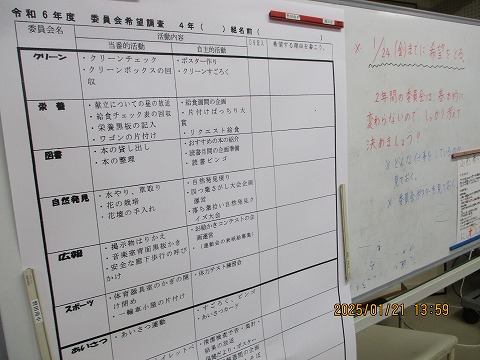 令和６年度　委員会希望調査　４年（　　）組名前（　　　　）
委員会名
活動内容
当番的活動
自主的活動
希望する理由を書こう。
クリーン
・クリーンチェック
・クリーンボックスの回収
・ポスター作り
・クリーンすごろく
栄養
・献立についての昼の放送
・給食チェック表の回収
・栄養黒板の記入
・ワゴンの片付け
・給食週間の企画
・片付けばっちり大賞
・リクエスト給食
図書
・本の貸し出し
・本の整理
・おすすめの本の紹介
・読書月間の企画準備
・読書ビンゴ
自然発見
・水やり、草取り
・花の栽培
・花壇の手入れ
・自然発見便り
・四つ葉さがし大会企画運営
・落ち葉拾い自然発見クイズ大会
広報
・掲示物はりかえ
・音楽室背面黒板かき
・安全な廊下歩行の呼びかけ
・お絵かきコンテストの企画運営
・（運動会の表紙絵募集）
スポーツ
・体育器具室のかぎの開け閉め
・一輪車小屋の片付け
・体力テスト練習会
あいさつ
・あいさつ運動
・すごろく、ビンゴ
・あいさつカード
※ 1/24(金)までに希望をとる。
2年間の委員会は基本的に
変わらないので しっかり考えて
決めましょう!!
2025/01/21 13:59